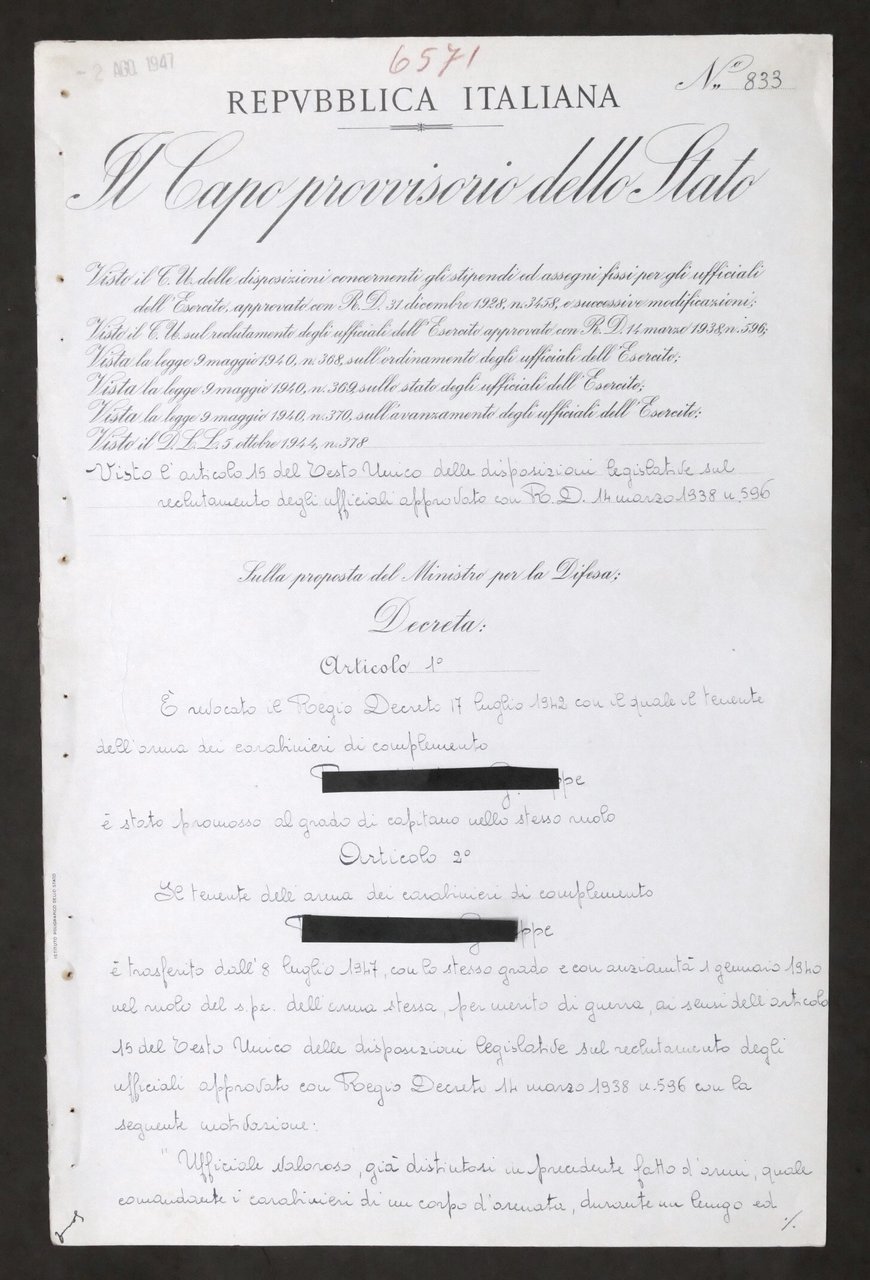 - 2 AGO. 1947
6571
N.º 833
REPVBBLICA ITALIANA
Il Capo provvisorio dello Stato
Visto il T. U. delle disposizioni concernenti gli stipendi ed assegni fissi per gli ufficiali
dell'Esercito, approvato con R. D. 31 dicembre 1928, n. 3458, e successive modificazioni;
Visto il T. U. sul reclutamento degli ufficiali dell'Esercito approvato con R. D. 14 marzo 1938, n. 596;
Vista la legge 9 maggio 1940, n. 368, sull'ordinamento degli ufficiali dell'Esercito;
Vista la legge 9 maggio 1940, n. 369, sullo stato degli ufficiali dell'Esercito;
Vista la legge 9 maggio 1940, n. 370, sull'avanzamento degli ufficiali dell'Esercito;
Visto il D. L. L. 5 ottobre 1944, n. 378
Visto l'articolo 15 del Testo Unico delle disposizioni legislative sul
reclutamento degli ufficiali approvato con R. D. 14 marzo 1938 n. 596
Sulla proposta del Ministro per la Difesa;
Decreta:
Articolo 1º
È revocato il Regio Decreto 17 luglio 1942 con il quale il tenente
dell'arma dei carabinieri di complemento
ppe
è stato promosso al grado di capitano nello stesso ruolo
Articolo 2º
Il tenente dell'arma dei carabinieri di complemento
ppe
è trasferito dall'8 luglio 1947, con lo stesso grado e con anzianità 1 gennaio 1940
nel ruolo del s.p.e. dell'arma stessa, per merito di guerra, ai sensi dell'articolo
15 del Testo Unico delle disposizioni legislative sul reclutamento degli
ufficiali approvato con Regio Decreto 14 marzo 1938 n. 596 con la
seguente motivazione:
"Ufficiale valoroso, già distintosi in precedente fatto d'armi, quale
comandante i carabinieri di un corpo d'armata, durante un lungo ed
./.
ISTITUTO POLIGRAFICO DELLO STATO